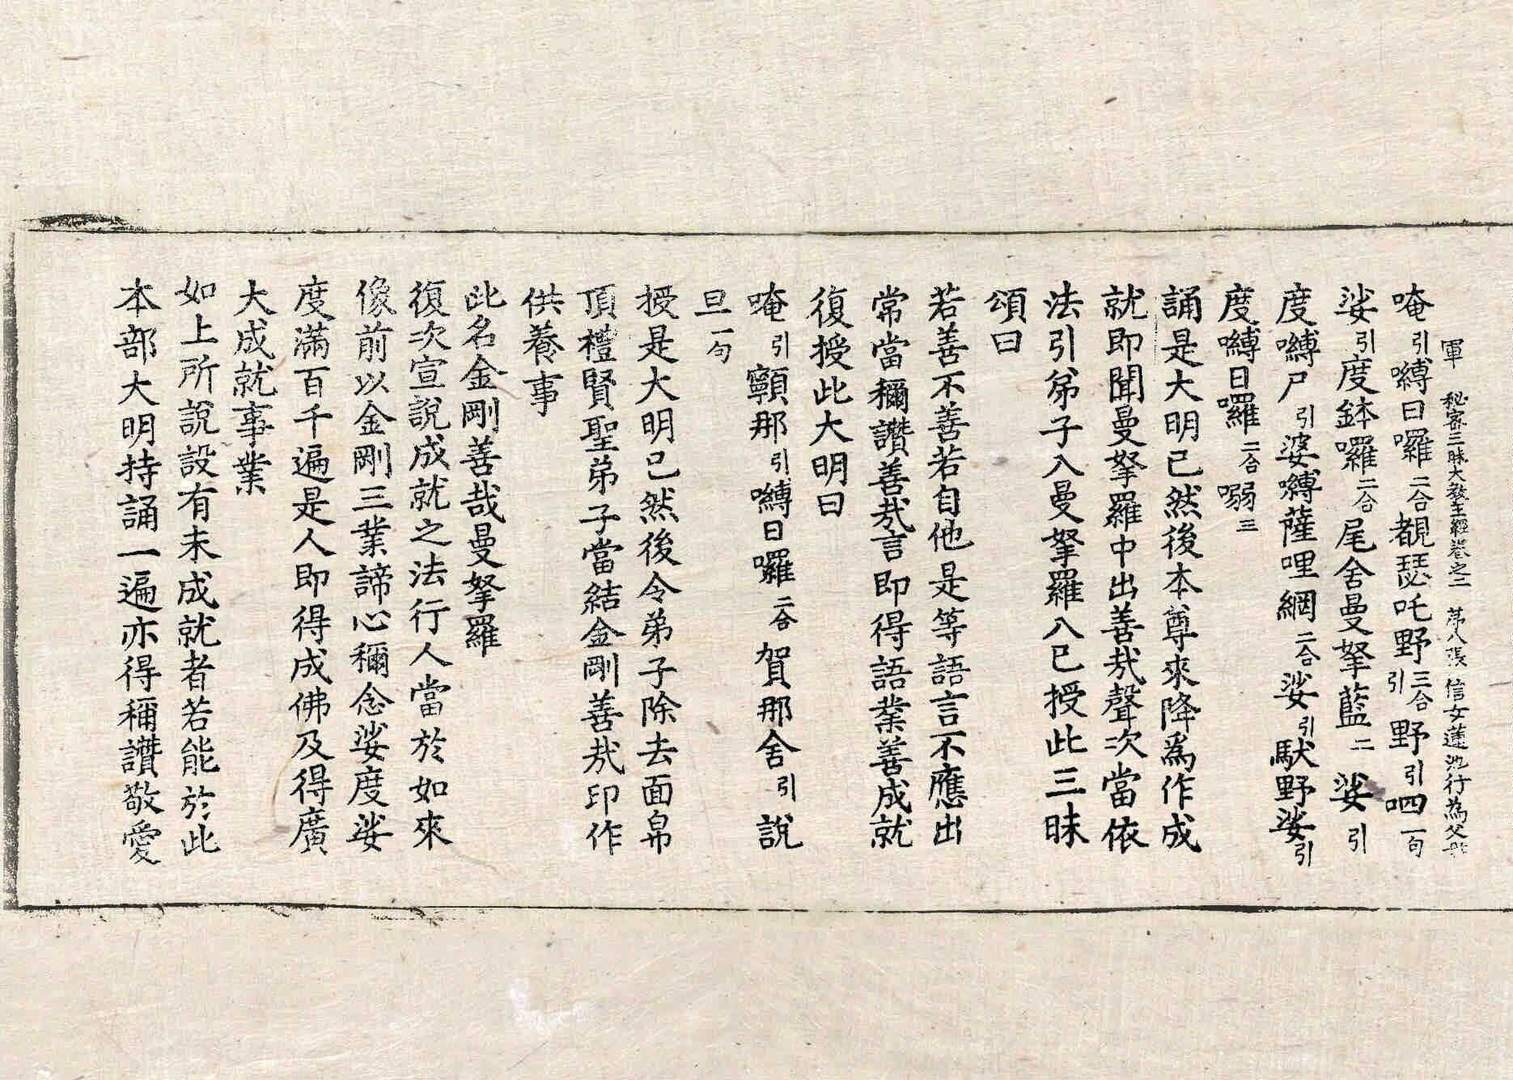 軍 秘密三昧大教王經卷之二 苐八張 信女蓮池行為父母
唵引嚩日囉二合覩瑟吒野三合引野引呬一句
娑引度鉢囉二合尾舍曼拏藍二娑引
度嚩尸引婆嚩薩哩網二合娑引馱野娑引
度嚩日囉二合嗍三
誦是大明已然後本尊來降為作成
就即聞曼拏羅中出善㢤聲次當依
法引弟子入曼拏羅入已授此三昧
頌曰
若善不善若自他是等語言不應出
常當稱讚善㢤言即得語業善成就
復授此大明曰
唵引顐那引嚩日囉二合賀那舍引說
旦一句
授是大明已然後令弟子除去面帛
頂禮賢聖弟子當結金剛善㢤印作
供養事
此名金剛善哉曼拏羅
復次宣說成就之法行人當於如來
像前以金剛三業諦心稱念娑度娑
度滿百千遍是人即得成佛及得廣
大成就事業
如上所說設有未成就者若能於此
本部大明持誦一遍亦得稱讚敬愛